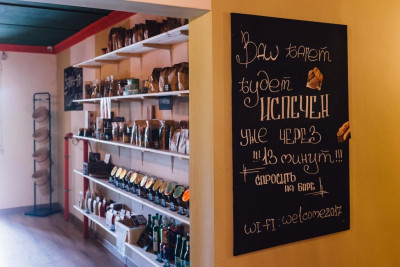 Ваш багет
будет
испечен
уже через
!!! 13 минут!!!
#спросить
на баре#
WI-FI: welcome2017